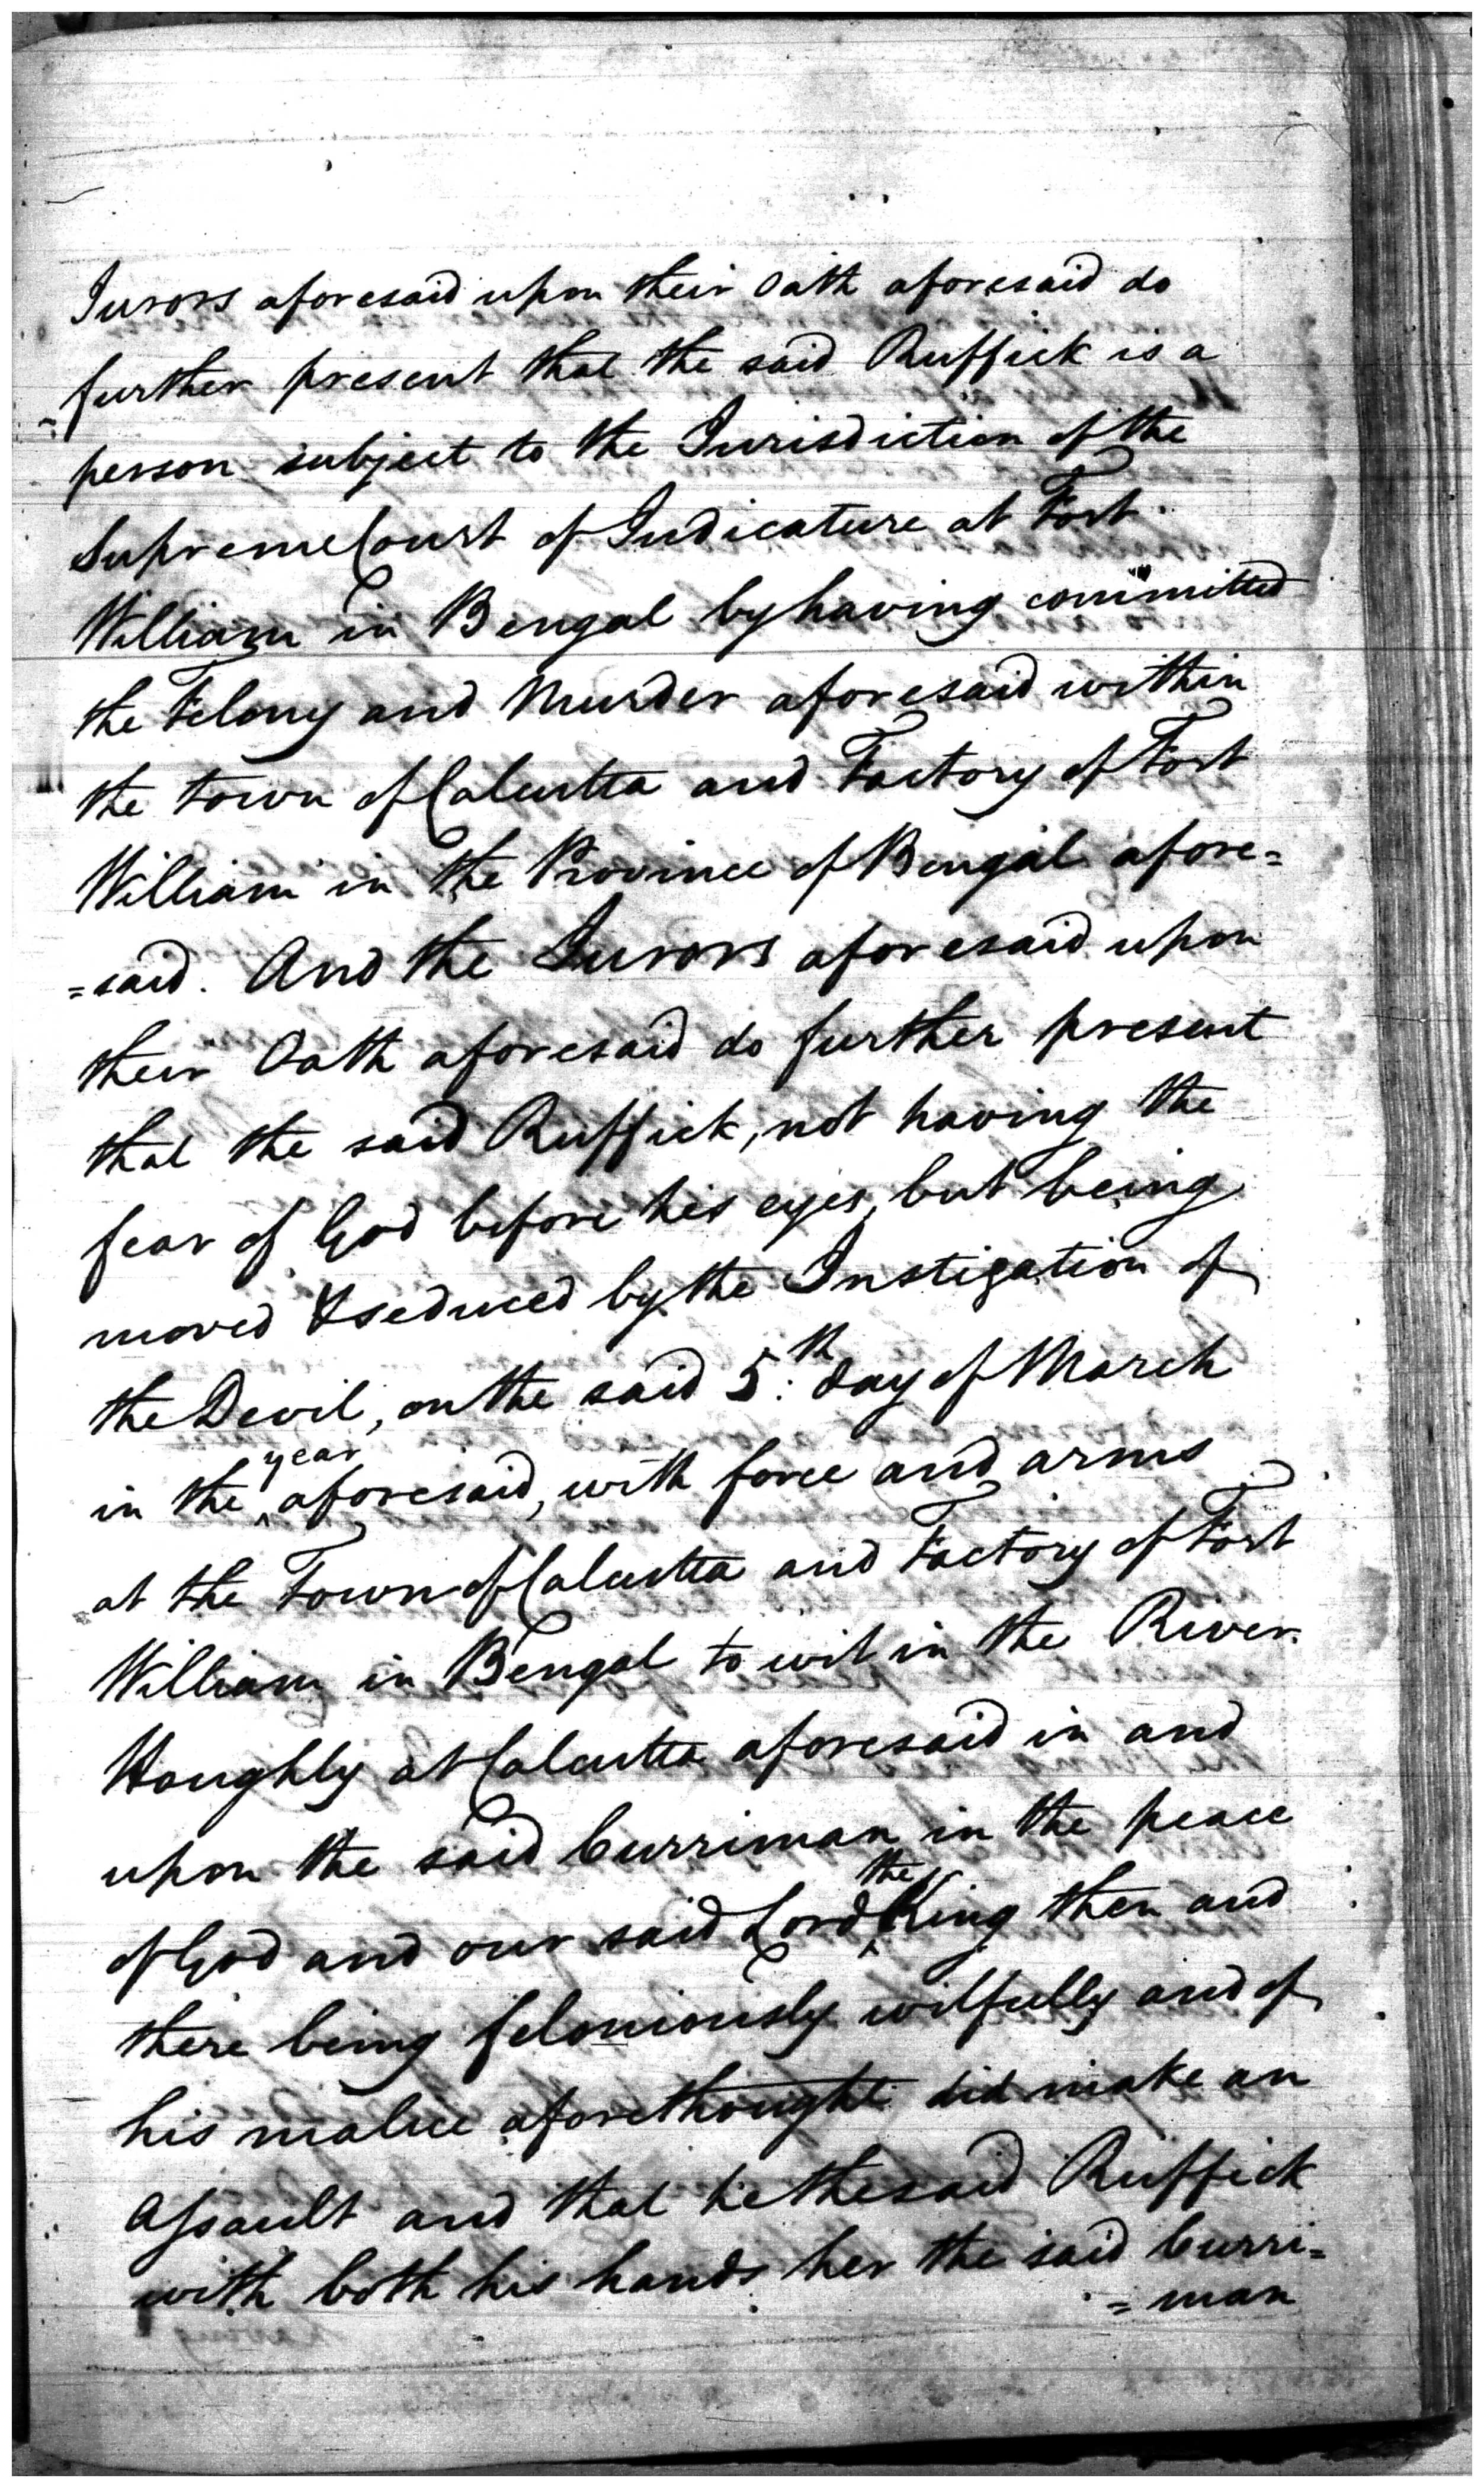 Jurors aforesaid upon their Oath aforesaid do
further present that the said Ruffick is a
person subject to the Jurisdiction of the
Supreme Court of Judicature at Fort
William in Bengal by having committed
the Felony and Murder aforesaid within
the town of Calcutta and Factory of Fort
William in the Province of Bengal afore=
=said. And the Jurors aforesaid upon
their Oath aforesaid do further present
that the said Ruffick, not having the
fear of God before his eyes, but being
moved & seduced by the Instigation of
the Devil, on the said 5.th day of March
in the year aforesaid, with force and arms
at the Town of Calcutta and Factory of Fort
William in Bengal to wit in the River
Houghly at Calcutta aforesaid in and
upon the said Curriman in the peace
of God and our said Lord the King then and
there being feloniously wilfully and of
his malice aforethought did make an
Assault and that he the said Ruffick
with both his hands her the said Curri=
=man